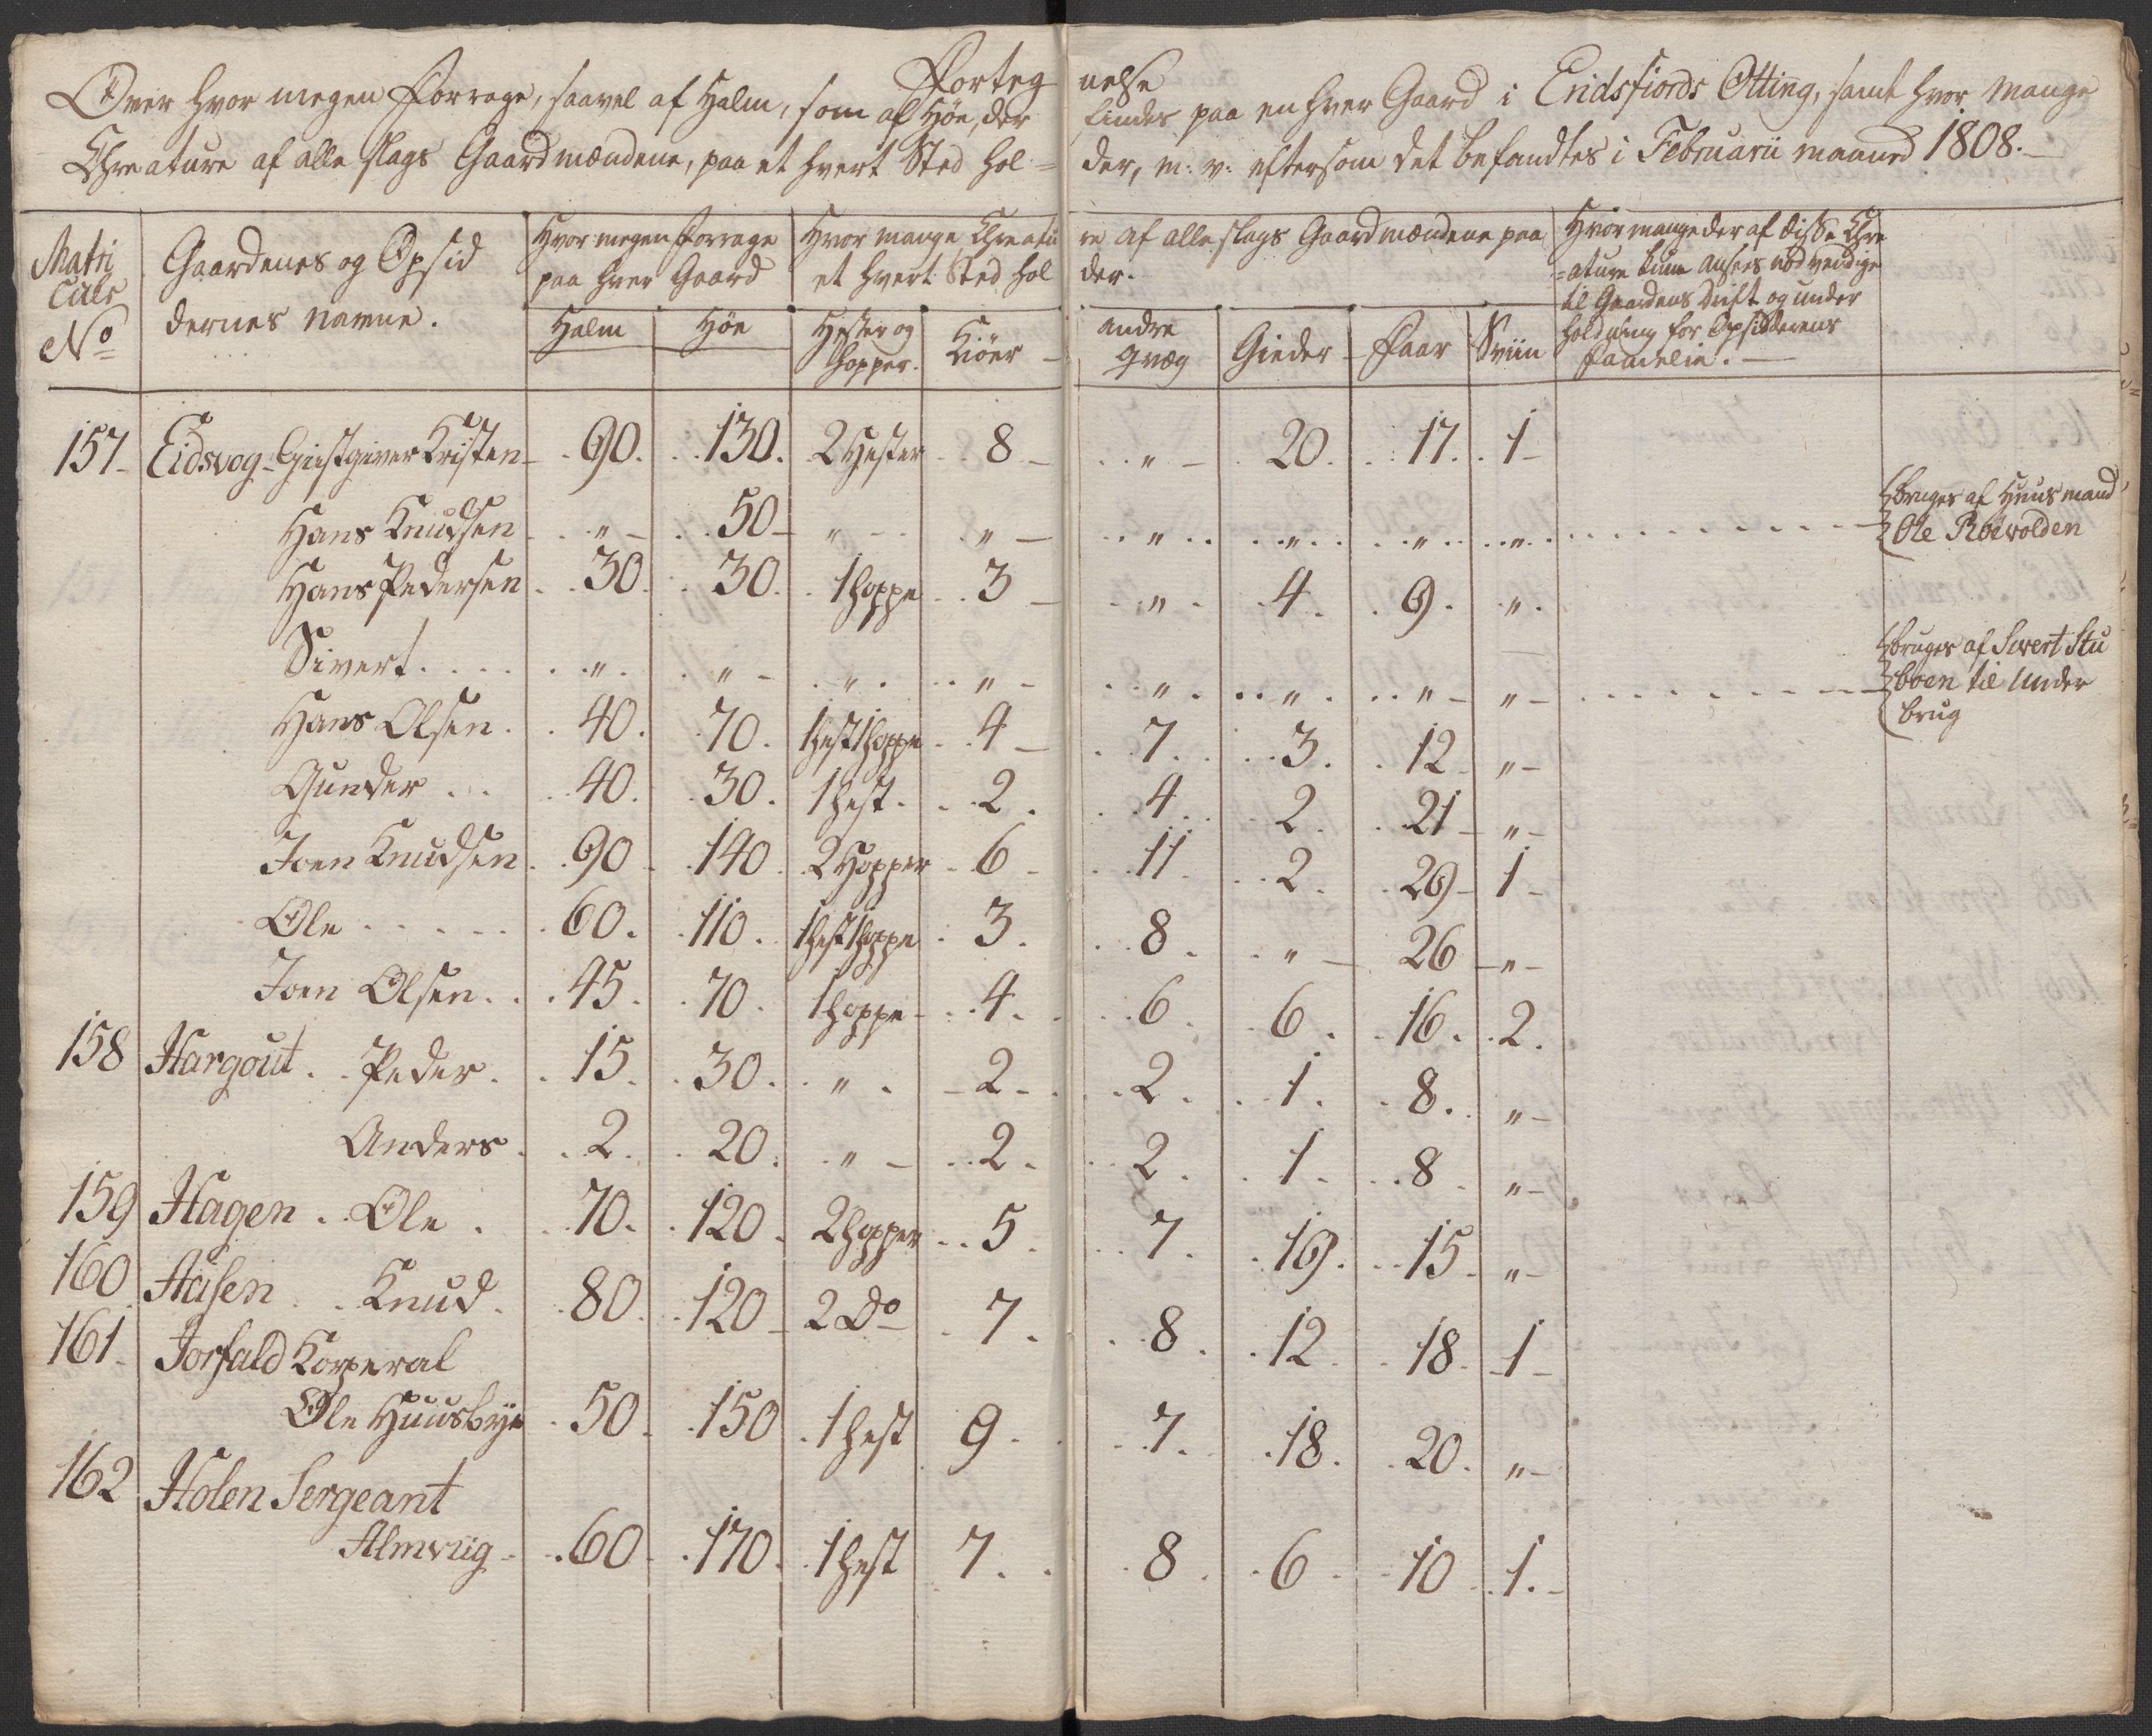 Forteg nelse
Over hvor megen Forrage, saavel af Halm, som af Høe, der findes paa en hver Gaard i Eridsfiords Otting, samt hvor mange
Chreature af alle slags Gaardmændene, paa et hvert Sted hol= der, m: v: eftersom det befandtes i Februarii maaned 1808.
Matri cule No | Gaardenes og Opsid dernes navne. | Hvor megen Forrage paa hver Gaard | Hvor mange Chreatu re af alle slags Gaardmændene paa et hvert Sted hol der. | Hvor mange der af disse Chre =ature kun ansees nødvendige til Gaardens Drift og under holdning for Opsidderens Famelie.
Halm | Høe | Hester og hopper. | Kiöer | andre qvæg | Gieder | Faar | Sviin
157 Eidsvog Giestgiver Kristen 90. 130. 2 Hester 8 " 20. 17. 1
Hans Knudsen " 50 " " " " " " bruges af Huusmand Ole Röevolden
Hans Pedersen 30. 30. 1 hoppe 3 " 4. 9. "
Sivert " " " " " " " " bruges af Sivert Stu boen til Under brug
Hans Olsen. 40. 70. 1 hest 1 hoppe 4 7. 3. 12 "
Gunder 40. 30. 1 hest. 2. 4. 2. 21 "
Joen Knudsen 90 140 2 Hopper 6 11 2. 29 1
Ole 60. 110. 1 hest 1 hoppe 3. 8. " 26 "
Joen Olsen. 45. 70. 1 hoppe 4. 6. 6. 16. 2.
158 Hargout. Peder. 15. 30. " 2 2. 1. 8. "
Anders. 2. 20. " 2. 2. 1. 8 "
159 Hagen. Ole. 70. 120. 2 hopper 5. 7. 19. 15. "
160 Aasen Knud. 80. 120 2 Do 7. 8. 12. 18. 1
161 Jorfald Korperal
Ole Huusbye 50. 150 1 hest 9. 7. 18. 20. "
162 Holen Sergeant
Almviig 60 170. 1 hest 7. 8 6 10 1.